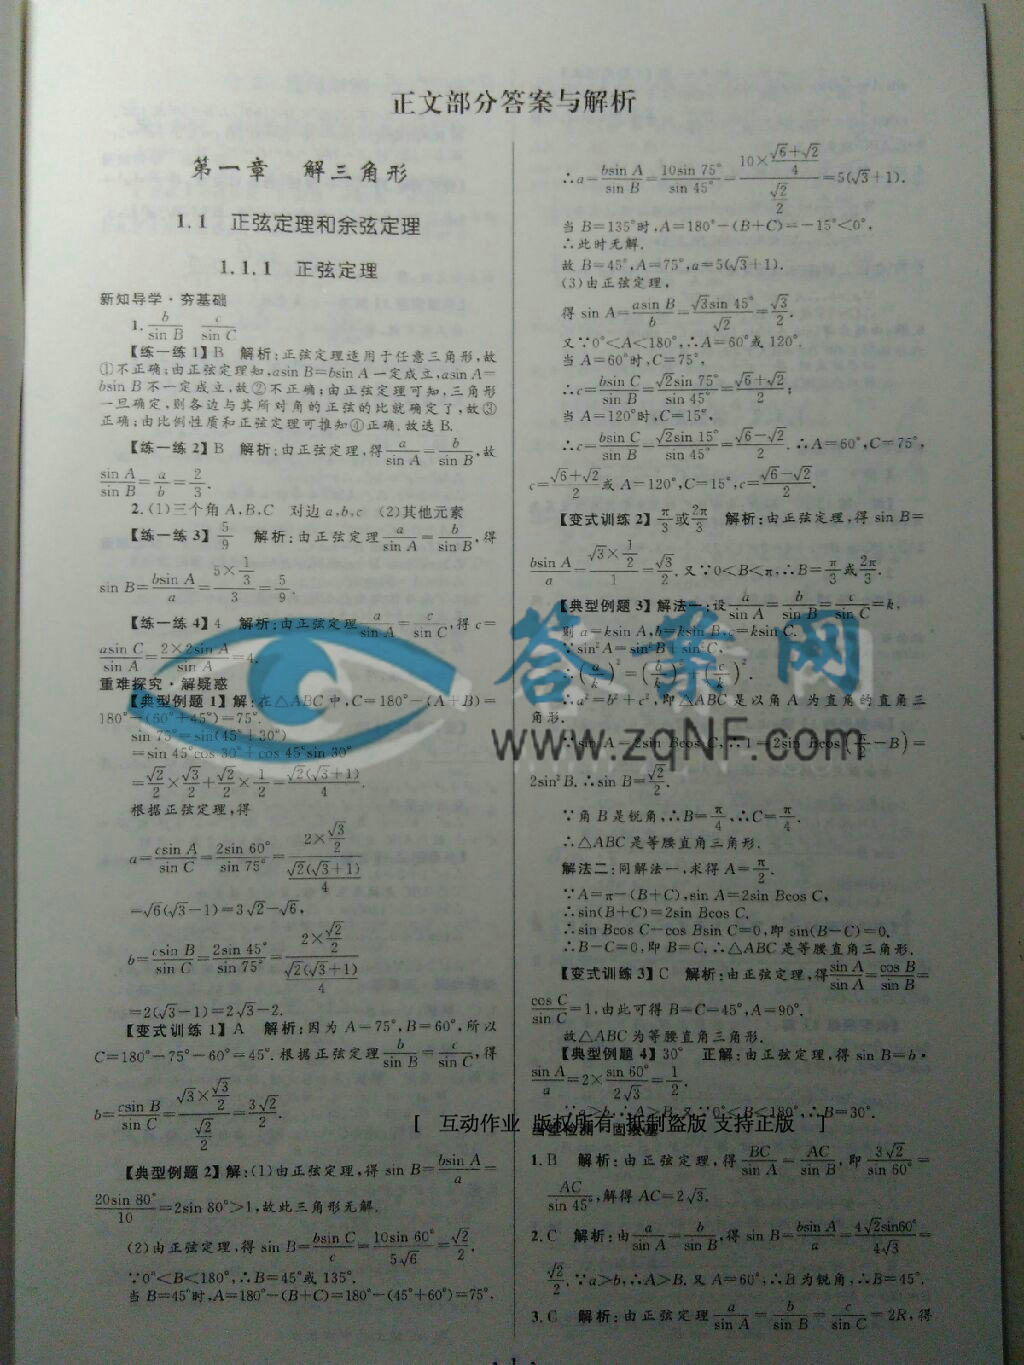 正文部分答案与解析
第一章 解三角形
1.1 正弦定理和余弦定理
1.1.1 正弦定理
新知导学·夯基础
1. b/sin B c/sin C
【练一练 1】B 解析:正弦定理适用于任意三角形,故
①不正确;由正弦定理知,asin B=bsin A 一定成立,asin A=
bsin B 不一定成立,故②不正确;由正弦定理可知,三角形
一旦确定,则各边与其所对角的正弦的比就确定了,故③
正确;由比例性质和正弦定理可推知④正确.故选 B.
【练一练 2】B 解析:由正弦定理,得 a/sin A = b/sin B,故
sin A/sin B = a/b = 2/3.
2.(1)三个角 A,B,C 对边 a,b,c (2)其他元素
【练一练 3】5/9 解析:由正弦定理 a/sin A = b/sin B,得
sin B = bsin A/a = (5×1/3)/3 = 5/9.
【练一练 4】4 解析:由正弦定理 a/sin A = c/sin C,得 c=
asin C/sin A = 2×2sin A/sin A = 4.
重难探究·解疑惑
【典型例题 1】解:在△ABC 中,C=180°-(A+B)=
180°-(60°+45°)=75°.
sin 75°=sin(45°+30°)
=sin 45°cos 30°+cos 45°sin 30°
=√2/2×√3/2+√2/2×1/2=√2(√3+1)/4.
根据正弦定理,得
a=csin A/sin C=2sin 60°/sin 75°=(2×√3/2)/(√2(√3+1)/4)
=√6(√3-1)=3√2-√6,
b=csin B/sin C=2sin 45°/sin 75°=(2×√2/2)/(√2(√3+1)/4)
=2(√3-1)=2√3-2.
【变式训练 1】A 解析:因为 A=75°,B=60°,所以
C=180°-75°-60°=45°.根据正弦定理 b/sin B = c/sin C,得
b=csin B/sin C=(√3×√3/2)/(√2/2)=3√2/2.
【典型例题 2】解:(1)由正弦定理,得 sin B=bsin A/a=
20sin 80°/10=2sin 80°>1,故此三角形无解.
(2)由正弦定理,得 sin B=bsin C/c=10sin 60°/5√6=√2/2.
∵0°<B<180°,∴B=45°或 135°.
当 B=45°时,A=180°-(B+C)=180°-(45°+60°)=75°.
∴a=bsin A/sin B=10sin 75°/sin 45°=(10×(√6+√2)/4)/(√2/2)=5(√3+1).
当 B=135°时,A=180°-(B+C)=-15°<0°,
∴此时无解.
故 B=45°,A=75°,a=5(√3+1).
(3)由正弦定理,
得 sin A=asin B/b=√3sin 45°/√2=√3/2.
又∵0°<A<180°,∴A=60°或 120°.
当 A=60°时,C=75°,
∴c=bsin C/sin B=√2sin 75°/sin 45°=(√6+√2)/2;
当 A=120°时,C=15°,
∴c=bsin C/sin B=√2sin 15°/sin 45°=(√6-√2)/2.∴A=60°,C=75°,
c=(√6+√2)/2或 A=120°,C=15°,c=(√6-√2)/2.
【变式训练 2】π/3或2π/3 解析:由正弦定理,得 sin B=
bsin A/a=(√3×1/2)/1=√3/2.又∵0<B<π,∴B=π/3或2π/3.
【典型例题 3】解法一:设a/sin A=b/sin B=c/sin C=k,
则 a=ksin A,b=ksin B,c=ksin C.
∵sin²A=sin²B+sin²C,
∴(a/k)²=(b/k)²+(c/k)².
∴a²=b²+c²,即△ABC 是以角 A 为直角的直角三
角形.
∵sin A=2sin Bcos C,∴1=2sin Bcos(π/2-B)=
2sin²B.∴sin B=√2/2.
∵角 B 是锐角,∴B=π/4,∴C=π/4.
∴△ABC 是等腰直角三角形.
解法二:同解法一,求得 A=π/2.
∵A=π-(B+C),sin A=2sin Bcos C,
∴sin(B+C)=2sin Bcos C.
∴sin Bcos C-cos Bsin C=0,即 sin(B-C)=0.
∴B-C=0,即 B=C.∴△ABC 是等腰直角三角形.
【变式训练 3】C 解析:由正弦定理,得sin A/sin A=cos B/sin B=
cos C/sin C=1.由此可得 B=C=45°,A=90°.
故△ABC 为等腰直角三角形.
【典型例题 4】30° 正解:由正弦定理,得 sin B=b·
sin A/a=2×sin 60°/2√3=1/2.
∵a>b,∴A>B.又∵0°<B<180°,∴B=30°.
当堂检测·固双基
1.B 解析:由正弦定理,得BC/sin A=AC/sin B,即3√2/sin 60°=
AC/sin 45°,解得 AC=2√3.
2.C 解析:由a/sin A=b/sin B,得 sin B=bsin A/a=4√2sin60°/4√3=
√2/2.∵a>b,∴A>B.又 A=60°,∴B为锐角,∴B=45°.
3.C 解析:由正弦定理 a/sin A=b/sin B=c/sin C=2R,得
答案网
www.zqNF.com
[ 互动作业 版权所有 抵制盗版 支持正版 ]
· 1 ·